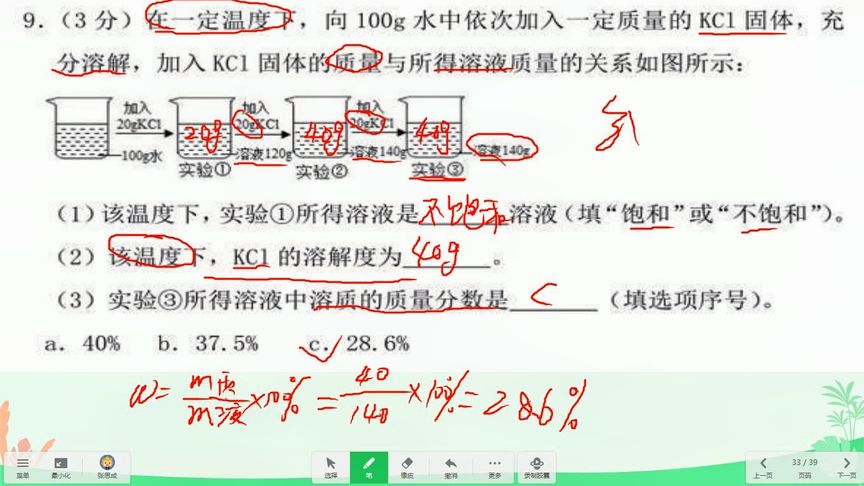 9.（3 分）在一定温度下，向 100g 水中依次加入一定质量的 KCl 固体，充
分溶解，加入 KCl 固体的质量与所得溶液质量的关系如图所示：
加入 加入 加入
20gKCl 20gKCl 20gKCl
20g 40g 40g
100g水 溶液120g 溶液140g 溶液140g
实验① 实验② 实验③
（1）该温度下，实验①所得溶液是不饱和溶液（填“饱和”或“不饱和”）。
（2）该温度下，KCl 的溶解度为40g。
（3）实验③所得溶液中溶质的质量分数是 C （填选项序号）。
a. 40% b. 37.5% c. 28.6%
w = m质/m液 ×100% = 40/140 ×100% = 28.6%
菜单 最小化 张思成 选择 笔 橡皮 撤消 更多 录制胶囊 上一页 33 / 39 页码 下一页